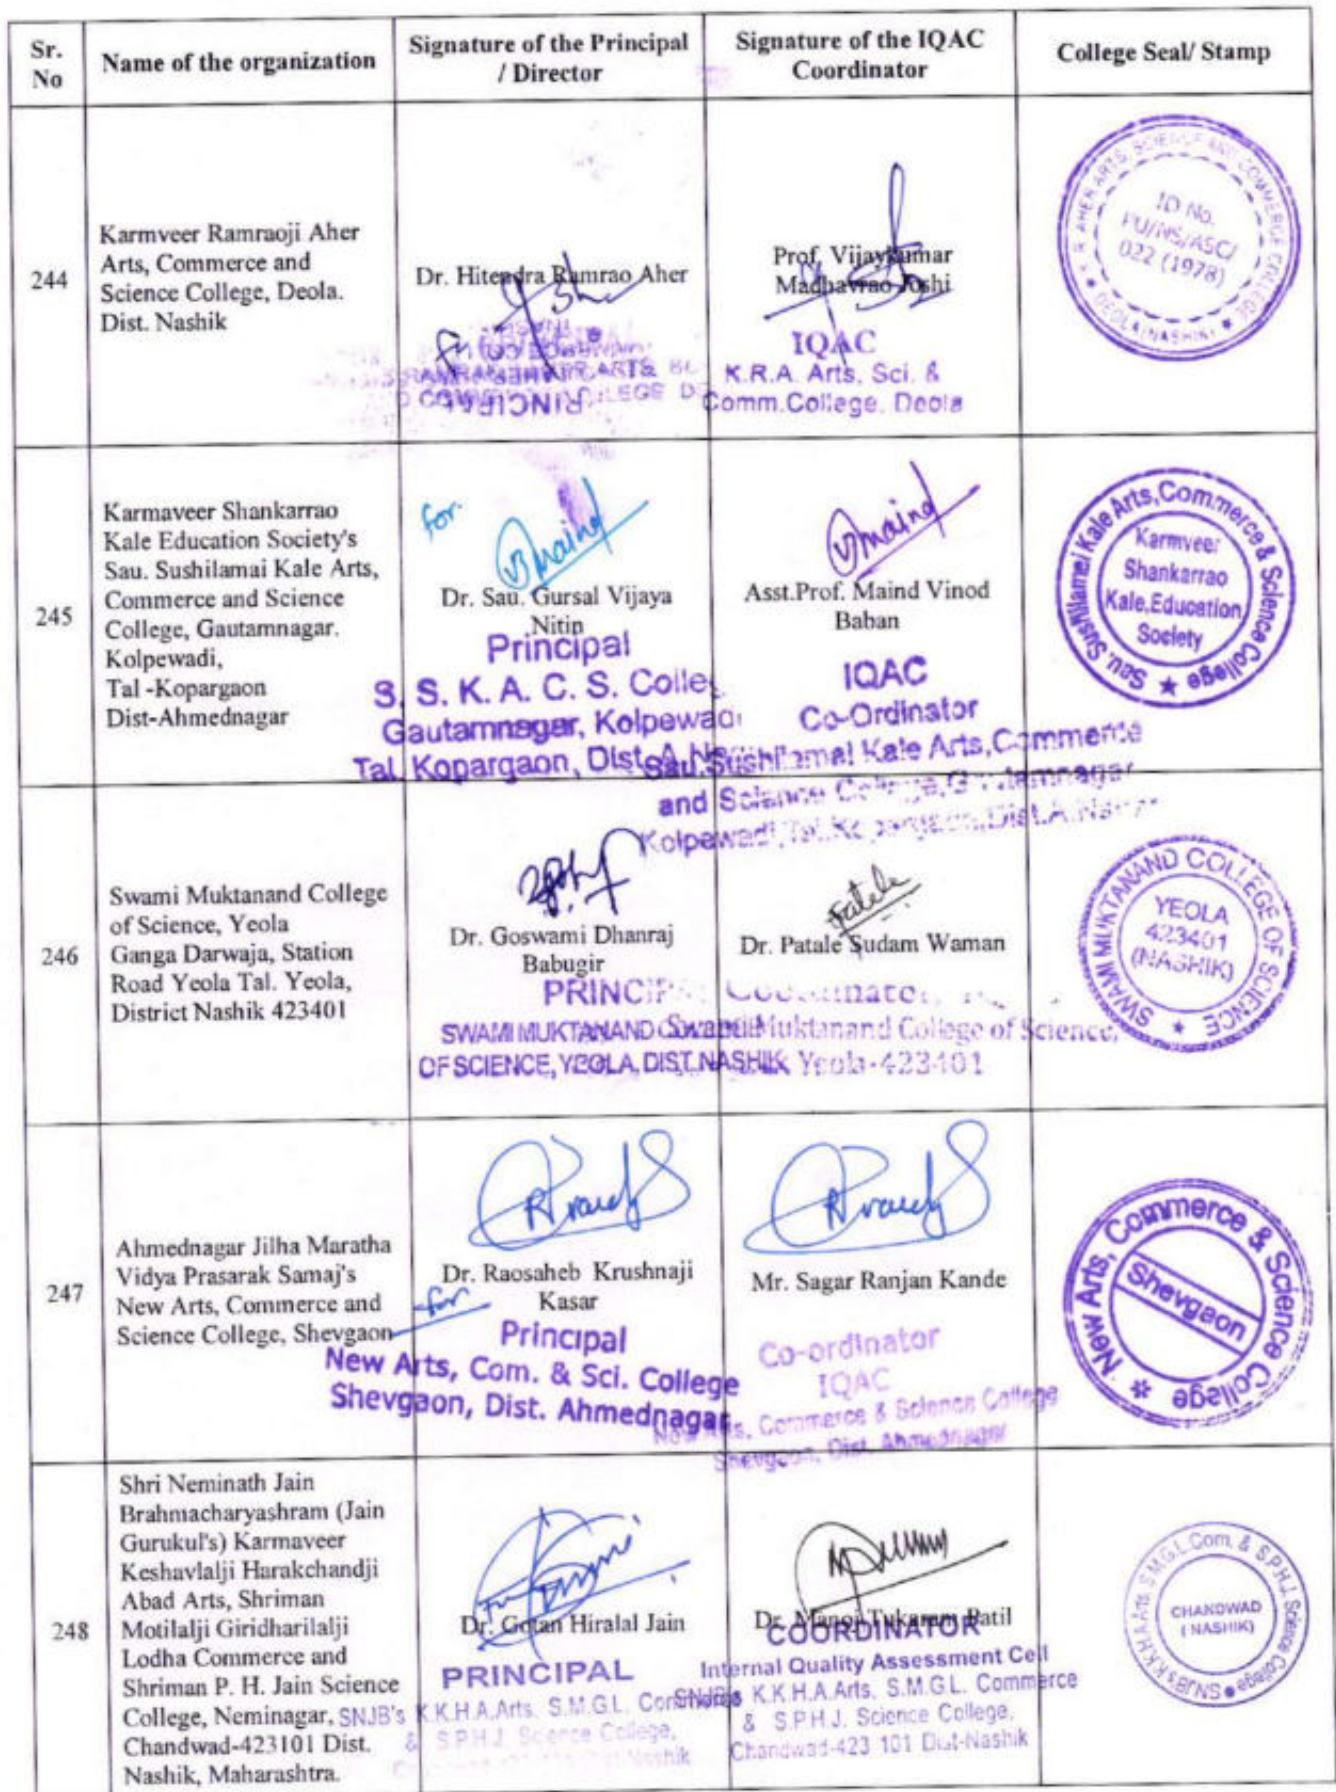 Sr.
No
Name of the organization
Signature of the Principal
/ Director
Signature of the IQAC
Coordinator
College Seal/ Stamp
244
Karmveer Ramraoji Aher
Arts, Commerce and
Science College, Deola.
Dist. Nashik
Dr. Hitendra Ramrao Aher
PRINCIPAL
Prof. Vijaykumar
Madhavrao Joshi
IQAC
K.R.A. Arts, Sci. &
Comm.College, Deola
K. R. AHER ARTS, SCIENCE AND COMMERCE COLLEGE
DEOLA (NASHIK)
ID No.
PU/NS/ASC/
022 (1978)
245
Karmaveer Shankarrao
Kale Education Society's
Sau. Sushilamai Kale Arts,
Commerce and Science
College, Gautamnagar.
Kolpewadi,
Tal -Kopargaon
Dist-Ahmednagar
for.
Vmaind
Dr. Sau. Gursal Vijaya
Nitin
Principal
S. S. K. A. C. S. Colle
Gautamnagar, Kolpewadi
Tal. Kopargaon, Dist. A.
Vmaind
Asst.Prof. Maind Vinod
Baban
IQAC
Co-Ordinator
Sau.Sushilamai Kale Arts,Commerce
and Science College,Gautamnagar
Kolpewadi,Tal.Kopargaon,Dist.A.Nagar
Sau. Sushilamai Kale Arts,Commerce & Science College
Karmveer
Shankarrao
Kale,Education
Society
246
Swami Muktanand College
of Science, Yeola
Ganga Darwaja, Station
Road Yeola Tal. Yeola,
District Nashik 423401
Dr. Goswami Dhanraj
Babugir
PRINCIPAL
SWAMI MUKTANAND
OF SCIENCE, YEOLA, DIST.NASHIK
Patale
Dr. Patale Sudam Waman
Coordinator,
Swami Muktanand College of Science,
Yeola-423401
SWAMI MUKTANAND COLLEGE OF SCIENCE
YEOLA
423401
(NASHIK)
247
Ahmednagar Jilha Maratha
Vidya Prasarak Samaj's
New Arts, Commerce and
Science College, Shevgaon
Dr. Raosaheb Krushnaji
Kasar
for
Principal
New Arts, Com. & Sci. College
Shevgaon, Dist. Ahmednagar
Mr. Sagar Ranjan Kande
Co-ordinator
IQAC
New Arts, Commerce & Science College
Shevgaon, Dist. Ahmednagar
New Arts, Commerce & Science College
Shevgaon
248
Shri Neminath Jain
Brahmacharyashram (Jain
Gurukul's) Karmaveer
Keshavlalji Harakchandji
Abad Arts, Shriman
Motilalji Giridharilalji
Lodha Commerce and
Shriman P. H. Jain Science
College, Neminagar,
Chandwad-423101 Dist.
Nashik, Maharashtra.
Dr. Gotan Hiralal Jain
PRINCIPAL
SNJB's K.K.H.A.Arts, S.M.G.L. Commerce
& S.P.H.J. Science College,
Dr. Manoj Tukaram Patil
COORDINATOR
Internal Quality Assessment Cell
SNJB's K.K.H.A.Arts, S.M.G.L. Commerce
& S.P.H.J. Science College,
Chandwad-423 101 Dist-Nashik
SNJB's K.K.H.A.Arts S.M.G.L.Com. & S.P.H.J. Science College
CHANDWAD
( NASHIK)